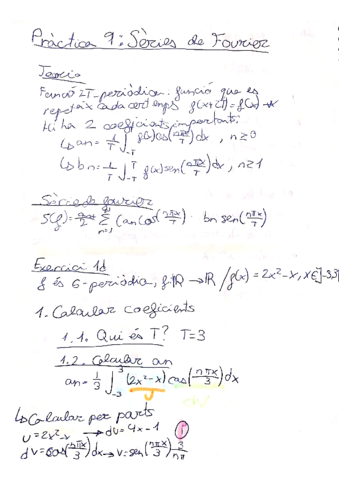 Pràctica 9: Sèries de Fourier
Teoria
Funció 2T-periòdica. funció que es
repeteix cada cert temps f(x+2T)=f(x)
Hi ha 2 coeficients importants:
↳ an = 1/T ∫_{-T}^{T} f(x)cos(nπx/T)dx, n≥0
↳ bn = 1/T ∫_{-T}^{T} f(x)sen(nπx/T)dx, n≥1
Sèrie de fourier
S(f) = ∑ (an cos(nπx/T) · bn sen(nπx/T)
Exercici 1d
f és 6-periòdica, f: ℝ → ℝ / f(x) = 2x²-x, x∈]-3,3
1. Calcular coeficients
1.1. Qui és T? T=3
1.2. Calcular an
an = 1/3 ∫_{-3}^{3} (2x²-x) cos(nπx/3)dx
↳ Calcular per parts
u = 2x²-x → du = 4x-1
dv = cos(nπx/3)dx → v = sen(nπx/3) 3/nπ